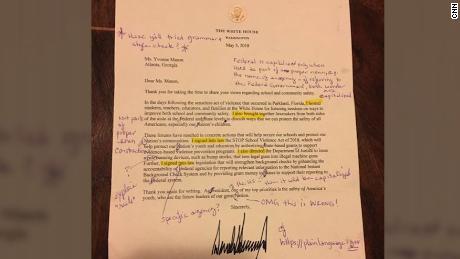 THE WHITE HOUSE
WASHINGTON
May 3, 2018
* Have y'all tried grammar &
style check? *
Ms. Yvonne Mason
Atlanta, Georgia
Federal is capitalized only when
used as part of a proper noun, e.g.
the Federal Government, both words
capitalized
Dear Ms. Mason,
Thank you for taking the time to share your views regarding school and community safety.
In the days following the senseless act of violence that occurred in Parkland, Florida, I hosted
students, teachers, educators, and families at the White House for listening sessions on ways to
improve both school and community safety. I also brought together lawmakers from both sides
of the aisle at the Federal and State level to discuss ways that we can protect the safety of all
Americans, especially our Nation's children.
These forums have resulted in concrete actions that will help secure our schools and protect our
Nation's communities. I signed into law the STOP School Violence Act of 2018, which will
help protect our Nation's youth and education by authorizing State-based grants to support
evidence-based violence prevention programs. I also directed the Department of Justice to issue
devices, such as bump stocks, that turn legal guns into illegal machine guns.
Further, I signed into law legislation that will strengthen background checks by enhancing the
accountability of Federal agencies for reporting relevant information to the National Instant
Background Check System and by providing grant money to States to support their reporting to
the Federal system.
Not part of
proper
noun
explain
"rule"
Thank you again for writing. As President, one of my top priorities is the safety of America's
youth, who are the future leaders of our great Nation.
specific agency?
Sincerely,
OMG this is WRONG!
https://plainlanguage.gov
CNN